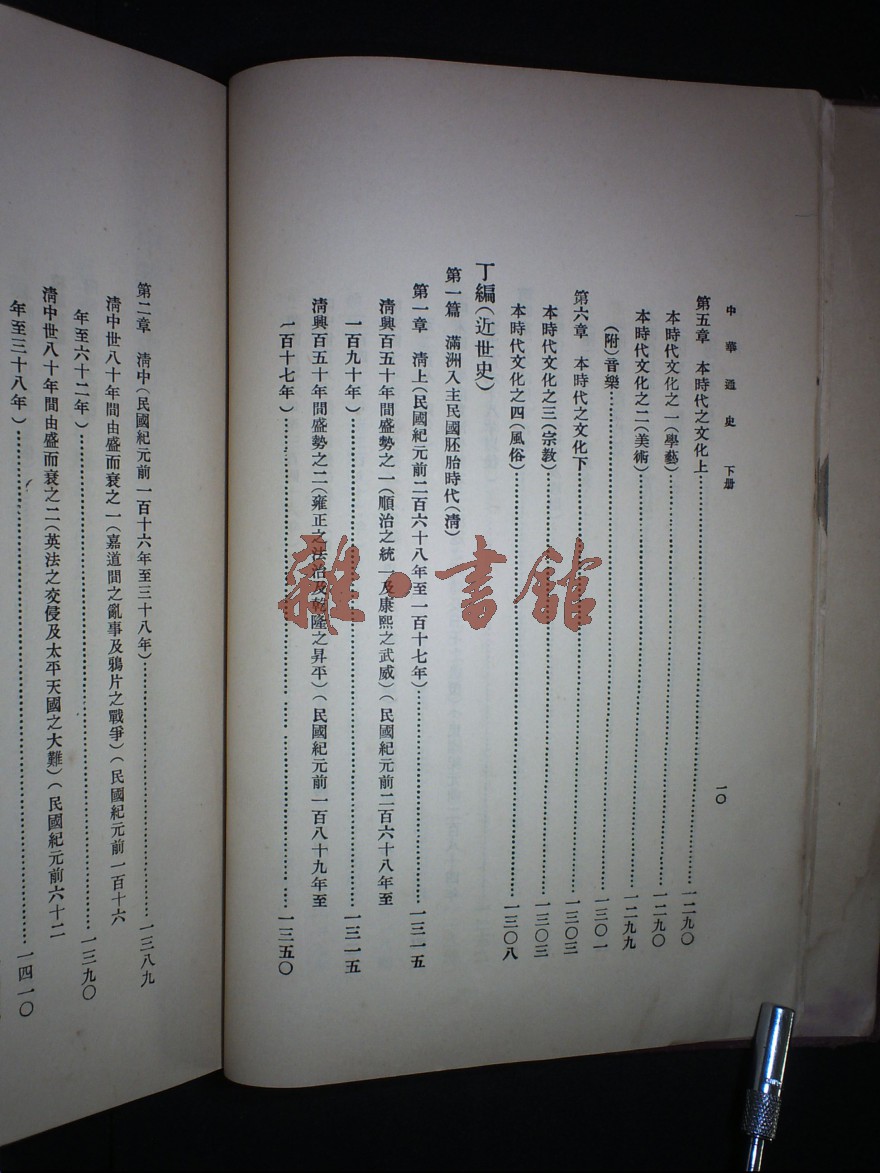 中華通史 下册
一〇
第五章 本時代之文化上……一二九〇
本時代文化之一(學藝)……一二九〇
本時代文化之二(美術)……一二九九
(附)音樂……一三〇一
第六章 本時代之文化下……一三〇三
本時代文化之三(宗教)……一三〇三
本時代文化之四(風俗)……一三〇八
丁編(近世史)
第一篇 滿洲入主民國胚胎時代(清)
第一章 清上(民國紀元前二百六十八年至一百十七年)……一三一五
清興百五十年間盛勢之一(順治之統一及康熙之武威)(民國紀元前二百六十八年至
一百九十年)……一三一五
清興百五十年間盛勢之二(雍正之法治及乾隆之昇平)(民國紀元前一百八十九年至
一百十七年)……一三五〇
第二章 清中(民國紀元前一百十六年至三十八年)……一三八九
清中世八十年間由盛而衰之一(嘉道間之亂事及鴉片之戰爭)(民國紀元前一百十六
年至六十二年)……一三九〇
清中世八十年間由盛而衰之二(英法之交侵及太平天國之大難)(民國紀元前六十二
年至三十八年)……一四一〇
雜·書館